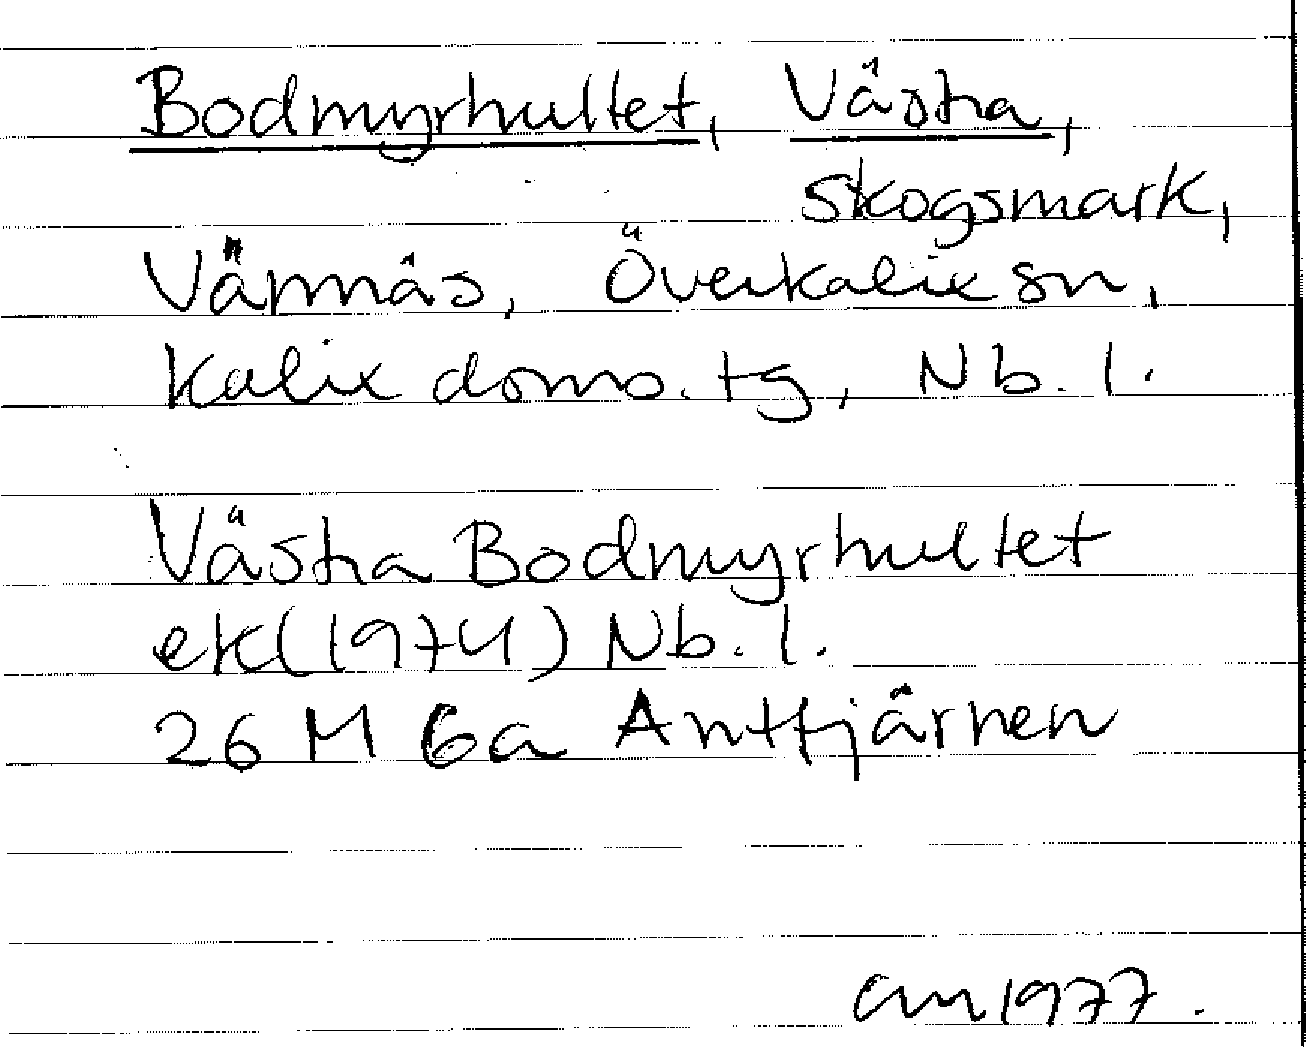 Bodmyrhultet, Västra,
skogsmark,
Vännäs, Överkalix sn,
Kalix doms. tg, Nb. l.
Västra Bodmyrhultet
ek(1974) Nb. l.
26 M 6a Anttjärnen
am 1977.